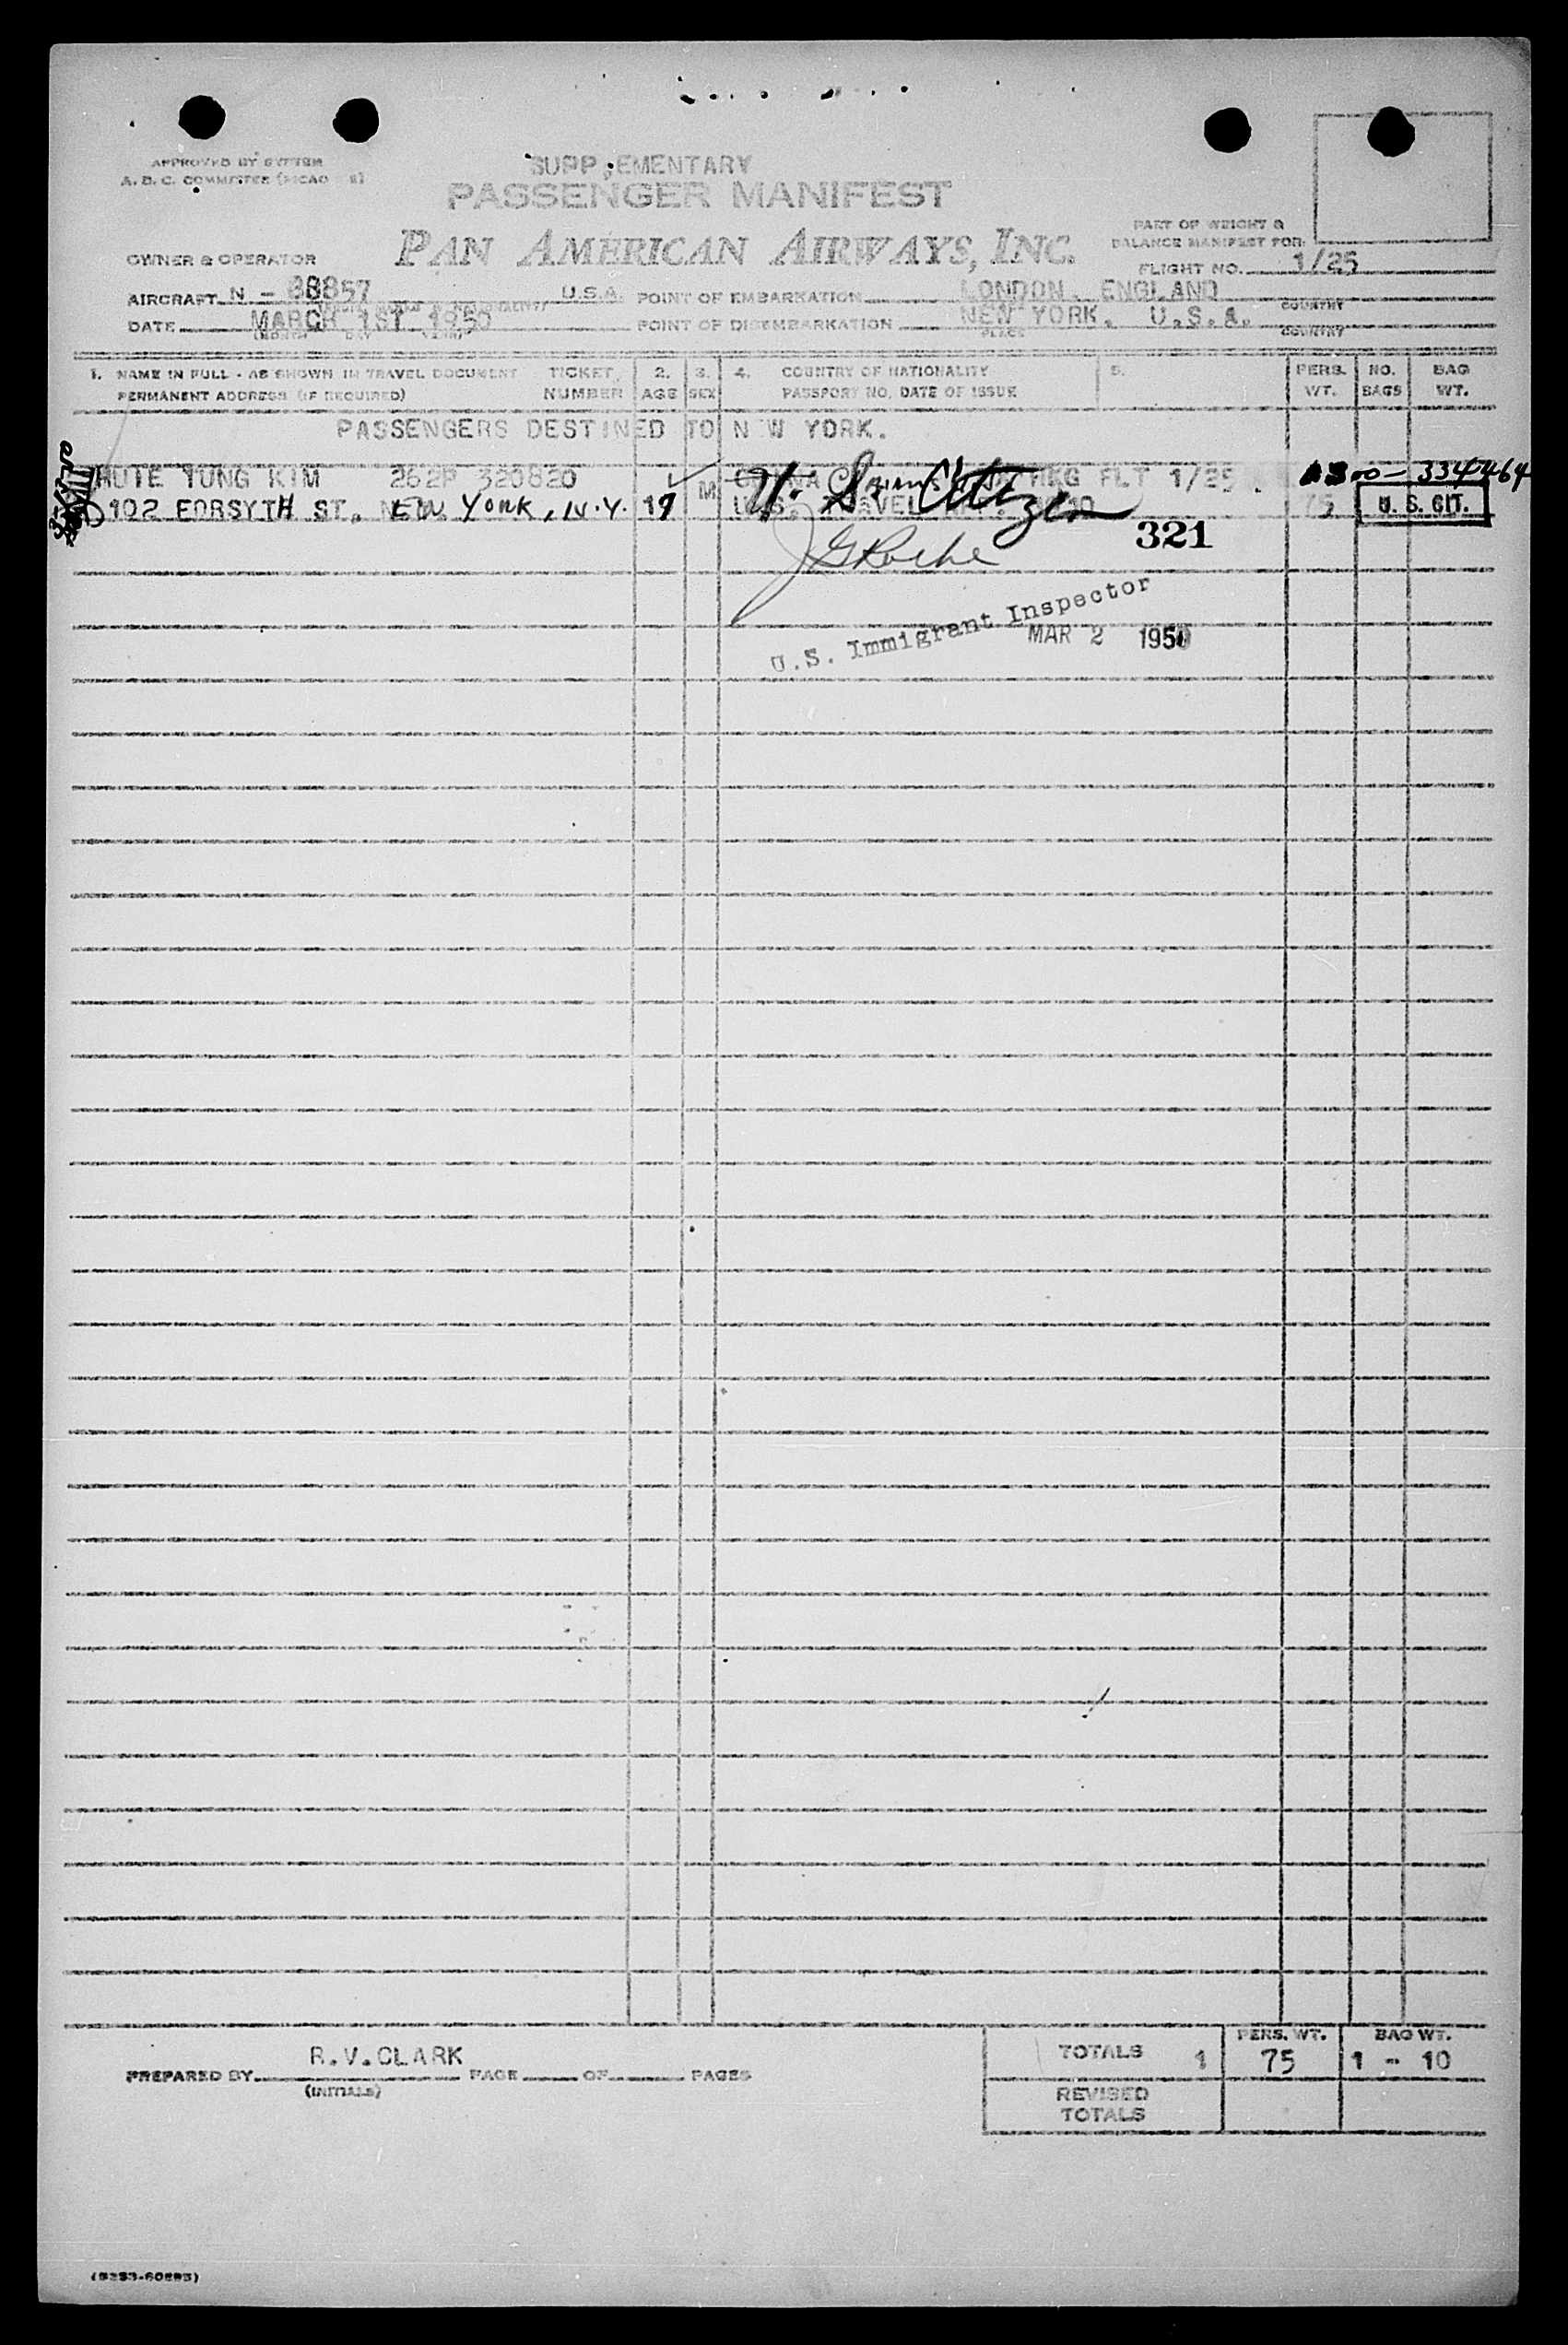 APPROVED BY SYSTEM
A. B. C. COMMITTEE (
SUPP;EMENTARY
PASSENGER MANIFEST
PAN AMERICAN AIRWAYS, INC.
PART OF WEIGHT &
BALANCE MANIFEST FOR:
OWNER & OPERATOR
FLIGHT NO. 1/25
AIRCRAFT N - 88857 U.S.A. POINT OF EMBARKATION LONDON, ENGLAND COUNTRY
DATE MARCH 1ST 1950 POINT OF DISEMBARKATION NEW YORK, U.S.A.
(MONTH DAY YEAR) PLACE COUNTRY
1. NAME IN FULL - AS SHOWN IN TRAVEL DOCUMENT TICKET 2. 3. 4. COUNTRY OF NATIONALITY 5. PERS. NO. BAG
PERMANENT ADDRESS (IF REQUIRED) NUMBER AGE SEX PASSPORT NO. DATE OF ISSUE WT. BAGS WT.
PASSENGERS DESTINED TO N W YORK.
TUNG KIM 262P 320820 HKG FLT 1/25 00-334464
102 FORSYTH ST, NEW YORK, N.Y. 19 M U. S. Citizen 75 U. S. CIT.
321
JGRoche
U.S. Immigrant Inspector
MAR 2 1950
R.V.CLARK
PREPARED BY PAGE OF PAGES
(INITIALS)
PERS. WT. BAG WT.
TOTALS 1 75 1 - 10
REVISED
TOTALS